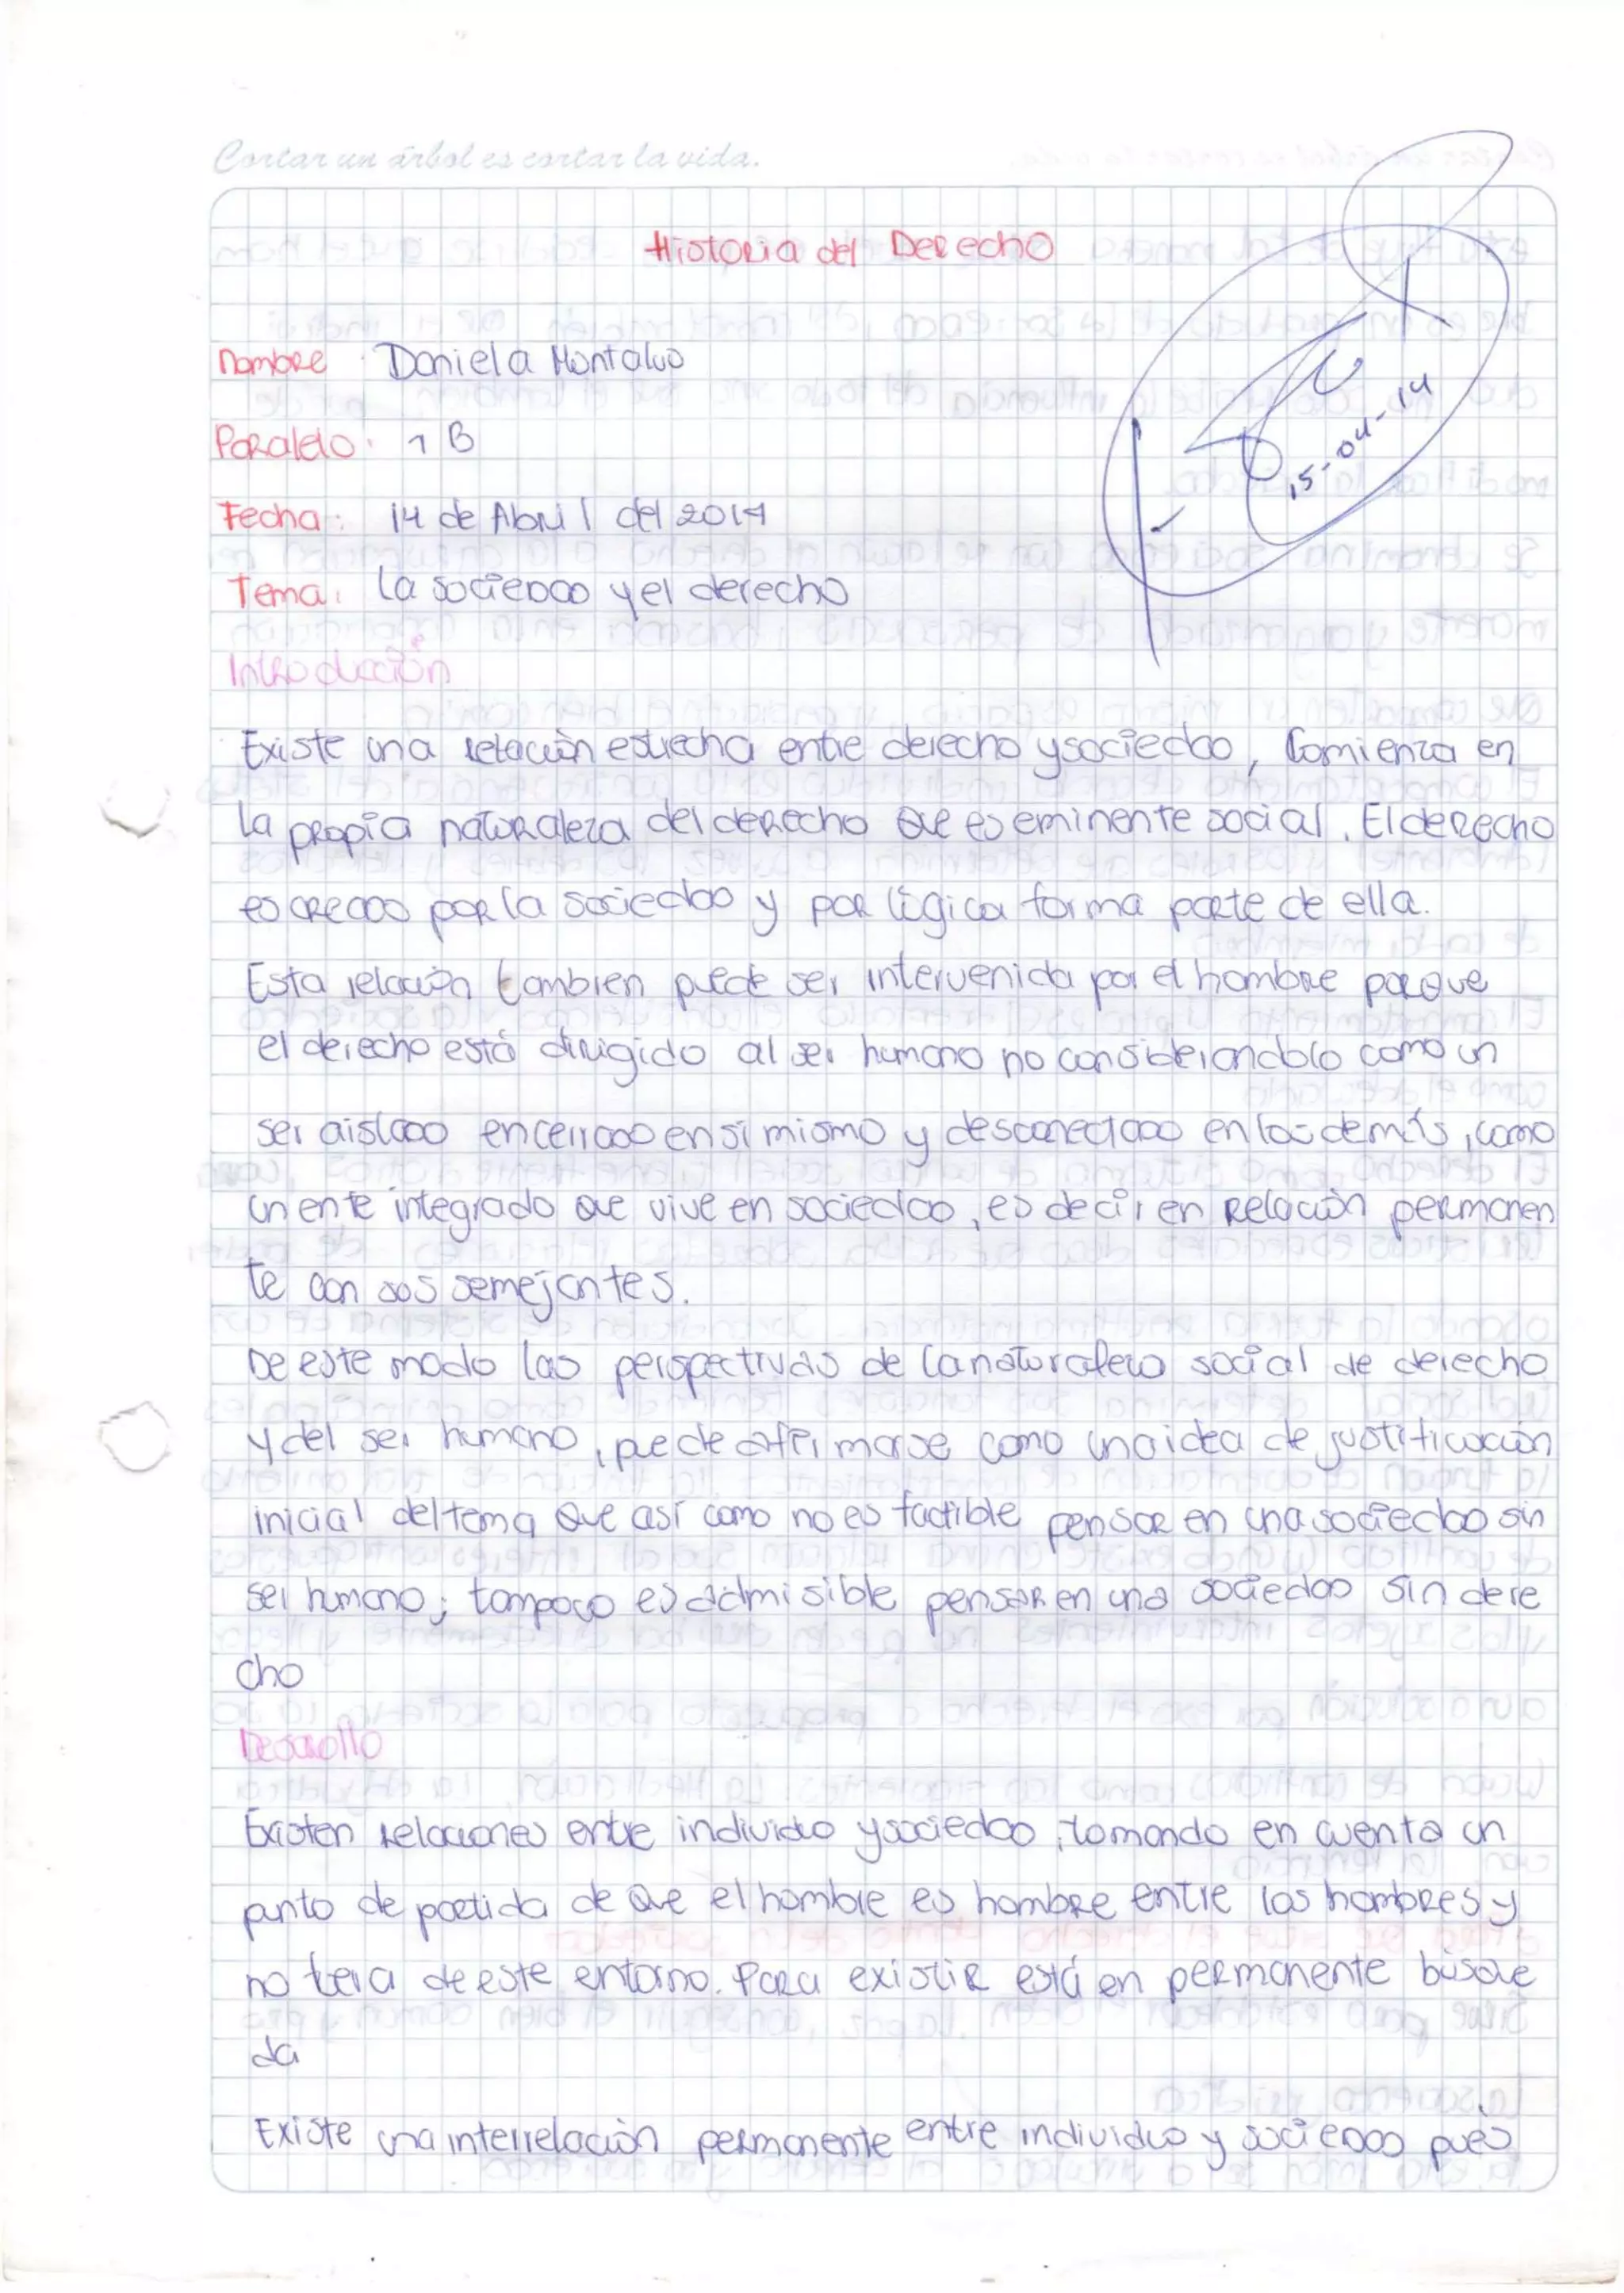 Cortar un árbol es cortar la vida.
Historia del Derecho
Nombre: Daniela Montalvo
Paralelo: 1 B
15-04-14
Fecha: 14 de Abril del 2014
Tema: La sociedad y el derecho
Introducción
Existe una relación estrecha entre derecho y sociedad, Comienza en
la propia naturaleza del derecho que es eminente social. El derecho
es creado por la sociedad y por lógica forma parte de ella.
Esta relación tambien puede ser intervenida por el hombre porque
el derecho está dirigido al ser humano no considerandolo como un
ser aislado encerrado en sí mismo y desconectado en los demás, como
un ente integrado que vive en sociedad, es decir en relación permanen
te con sus semejantes.
De este modo las perspectivas de la naturaleza social de derecho
y del ser humano, puede afirmarse como una idea de justificación
inicial del tema que así como no es factible pensar en una sociedad sin
ser humano; tampoco es admisible pensar en una sociedad sin dere
cho
Desarollo
Existen relaciones entre individuo y sociedad, tomando en cuenta un
punto de partida de que el hombre es hombre entre los hombres y
no fuera de este entorno. Para existir está en permanente búsque
da
Existe una interrelación permanente entre individuo y sociedad pués